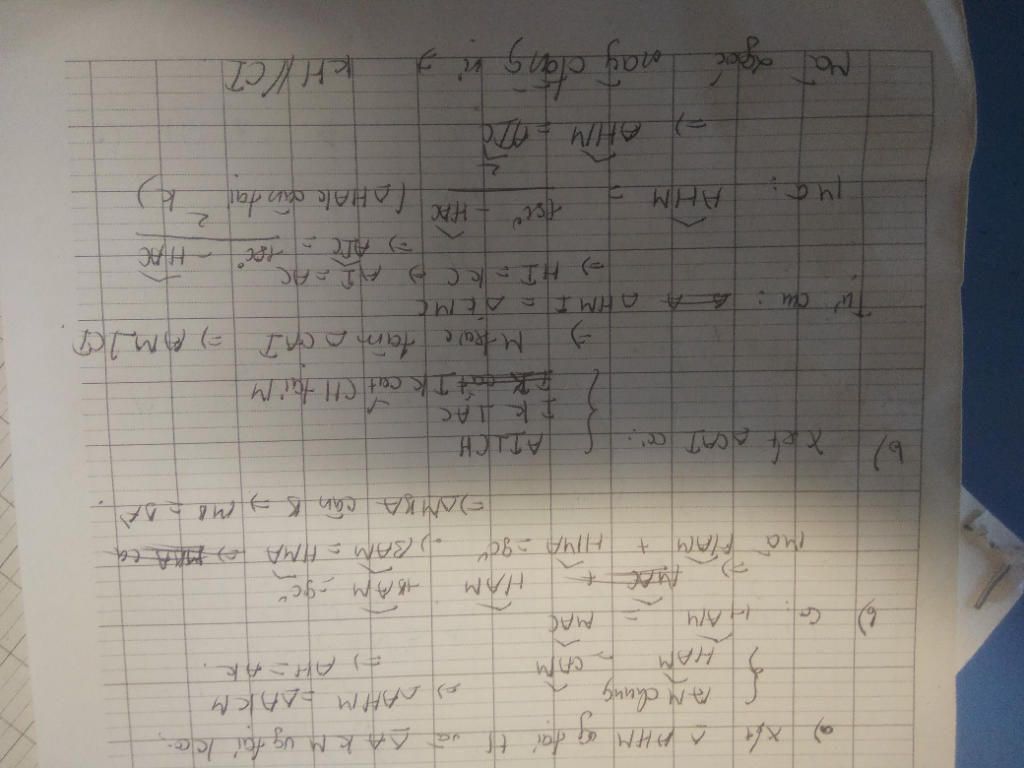 a) Xét Δ AHM vg tại H và ΔAKM vg tại K có:
{ AM chung
HAM = CAM
=> ΔAHM = ΔAKM
=> AH = AK.
b) Có: HAM = MAC
=> HAM + BAM = 90°
Mà HAM + HMA = 90° => BAM = HMA
=> ΔMBA cân B => MB = BA.
b) Xét ΔCAI có: { AI⊥CH
IK⊥AC
IK cắt CH tại M
=> M trực tâm ΔCAI => AM⊥CI
Từ câu: ΔHMI = ΔKMC
=> HI = KC => AI = AC
=> AIC = (180° - HAC)/2
Mà: AHK = (180° - HAC)/2 (ΔHAK cân tại K)
=> AHK = AIC
Mà 2 góc này đồng vị => KH//CI